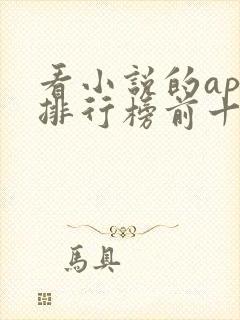 看小说的ap
排行榜前十
馬具